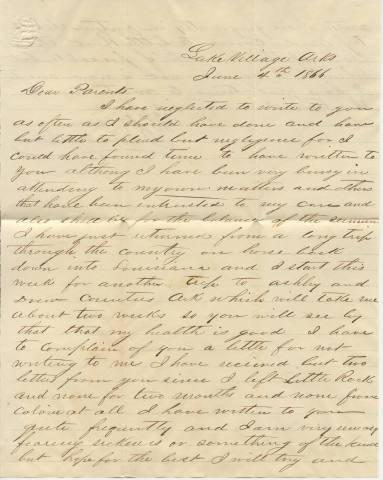 Lake Village Arks
June 4th 1866
Dear Parents
I have neglected to write to you
as often as I should have done and have
but little to plead but negligence for I
could have found time to have written to
you althoug I have been very buisy in
attending to my own matters and others
that have been intrusted to my care and
also shall be for the balance of the summer
I have just returned from a long trip
through the county on horse back
down into Louisiana and I start this
week for another trip to Ashley and
Drew Counties Ark which will take me
about two weeks so you will see by
that that my health is good I have
to complain of you a little for not
writing to me I have recieved but two
letters from you since I left Little Rock
and none for two months and none from
at all I have written to you
quite frequently and I am very uneasy
fearing sickness or something of the kind
but hope for the best I will try and